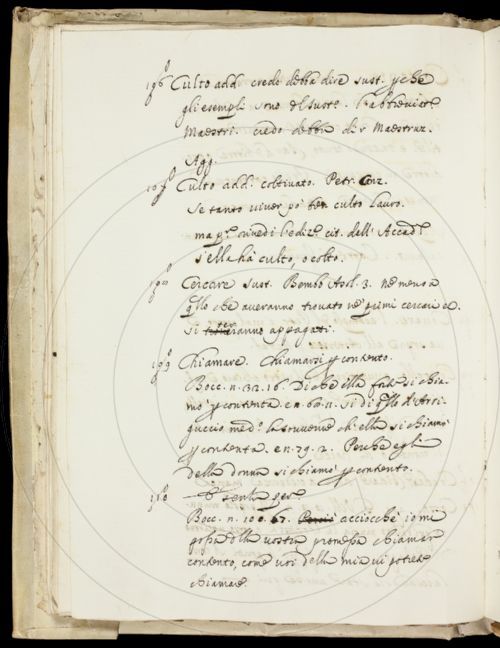 Culto add. credo debba dire sust. perche
gli esempli sono del sust.
Maestri. credo debba dir Maestruz.
Agg.
Culto add. coltivato. Petr. Canz.
Se tanto viver po' ben culto lauro.
ma rivedi l'ediz. cit. dall' Accad.
s'ella há culto, o colto.
Cercare sust. Bembo Asol. 3. ne meno a
quello che averanno trovato ne' primi cercari
si teranno appagati.
199 Chiamare. Chiamarsi per contento.
Bocc. n. 32. 16. Di che ella si chia-
mo per contenta. e n. 60. n. si di quello d'Arri-
guccio med. ch'ella si chiamò
per contenta. e n. 79. 2. Perche egli
della donna si chiamò per contento.
Bocc. n. 100. 67. acciocchè io mi
possa della vostra promessa chiamar
contento, come voi della mia vi potete
chiamare.